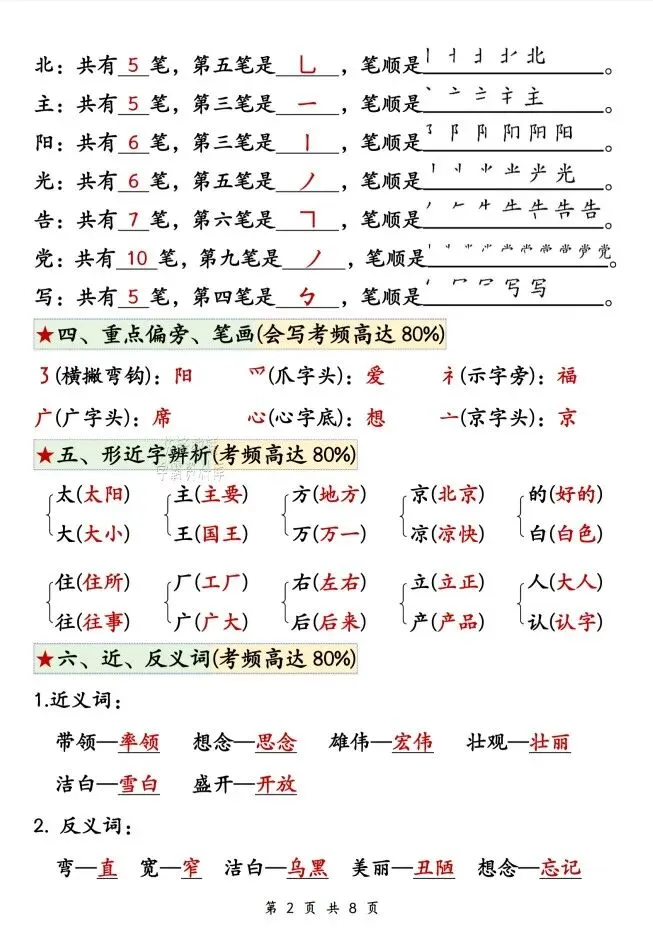 北：共有 5 笔，第五笔是 乚 ，笔顺是 丨 北 。
主：共有 5 笔，第三笔是 一 ，笔顺是 丶 亠 主 。
阳：共有 6 笔，第三笔是 丨 ，笔顺是 阝 阳 阳 。
光：共有 6 笔，第五笔是 丿 ，笔顺是 丨 光 。
告：共有 7 笔，第六笔是 ㄱ ，笔顺是 丿 𠂉 牛 告 告 。
党：共有 10 笔，第九笔是 丿 ，笔顺是 丨 党 。
写：共有 5 笔，第四笔是 ㄅ ，笔顺是 丶 冖 写 写 。
★四、重点偏旁、笔画(会写考频高达 80%)
㇌(横撇弯钩)：阳 爫(爪字头)：爱 礻(示字旁)：福
广(广字头)：席 心(心字底)：想 亠(京字头)：京
★五、形近字辨析(考频高达 80%)
太(太阳) 主(主要) 方(地方) 京(北京) 的(好的)
大(大小) 王(国王) 万(万一) 凉(凉快) 白(白色)
住(住所) 厂(工厂) 右(左右) 立(立正) 人(大人)
往(往事) 广(广大) 后(后来) 产(产品) 认(认字)
★六、近、反义词(考频高达 80%)
1.近义词：
带领—率领 想念—思念 雄伟—宏伟 壮观—壮丽
洁白—雪白 盛开—开放
2. 反义词：
弯—直 宽—窄 洁白—乌黑 美丽—丑陋 想念—忘记
第 2 页 共 8 页